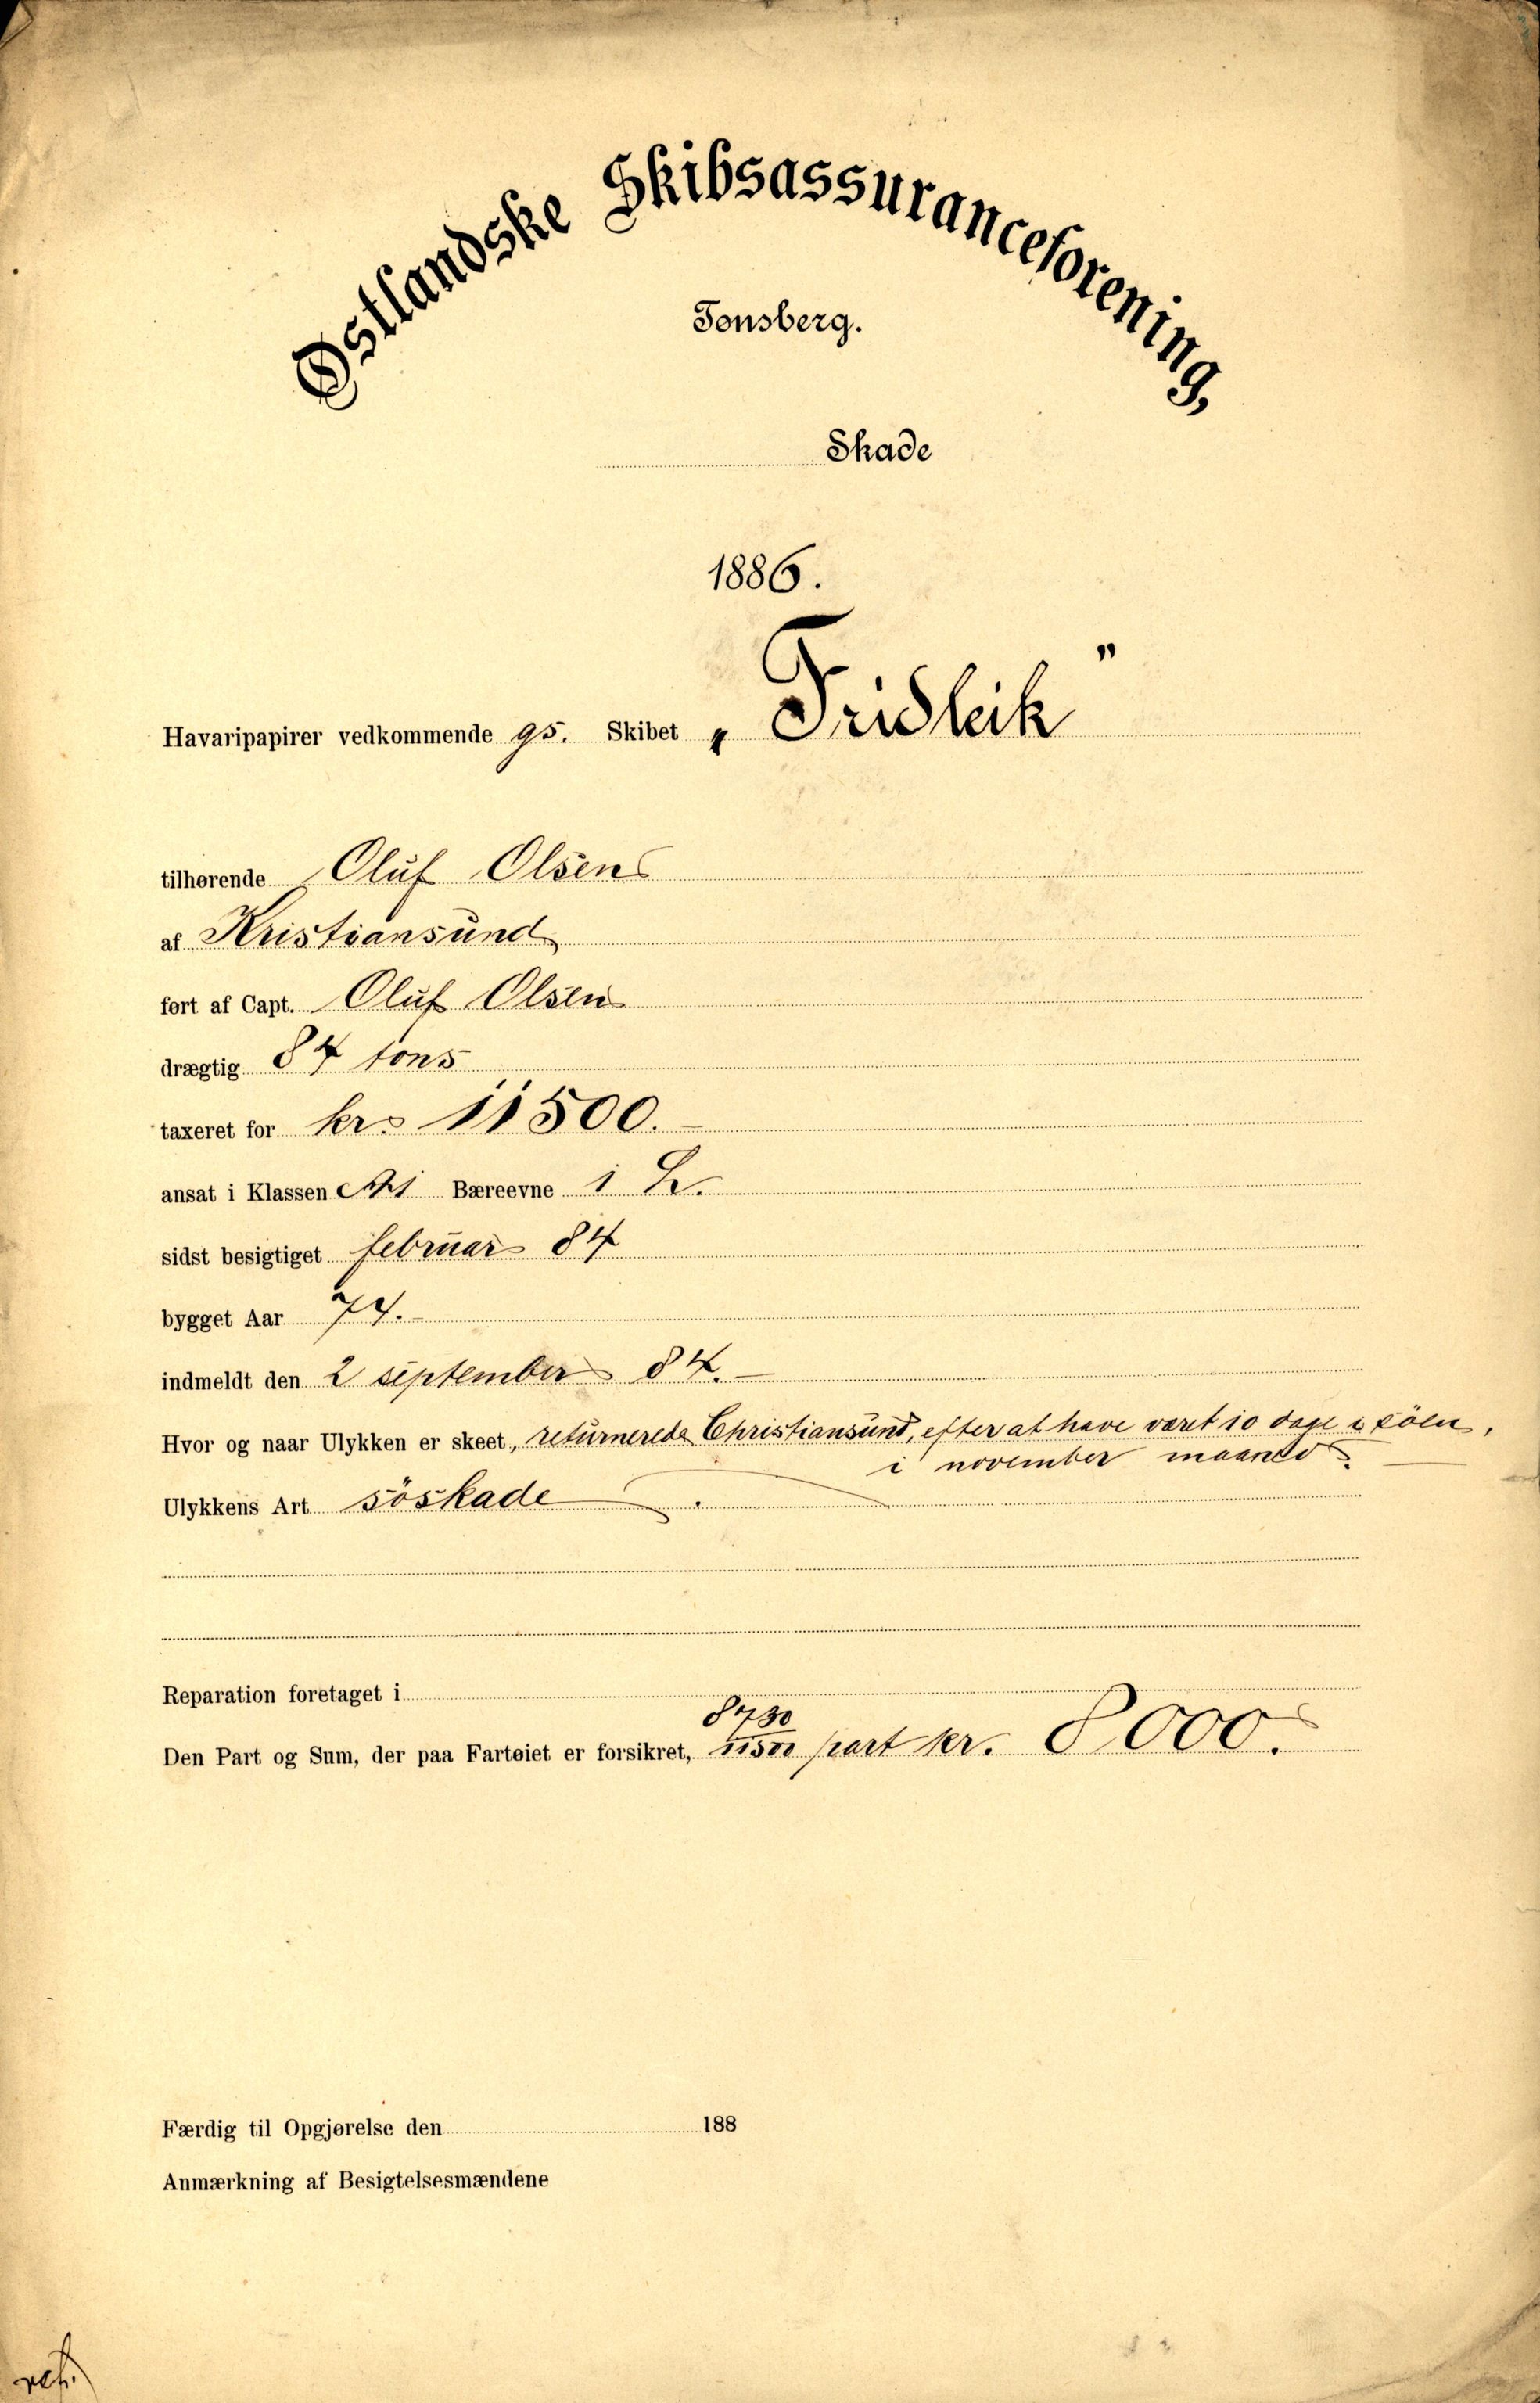 Østlandske Skibsassuranceforening,
Tønsberg.
Skade
1886.
Havaripapirer vedkommende 95. Skibet „Fridleik”
tilhørende Oluf Olsen
af Kristiansund
ført af Capt. Oluf Olsen
drægtig 84 tons
taxeret for kr. 11500.-
ansat i Klassen A1 Bæreevne 1
sidst besigtiget februar 84
bygget Aar 74.-
indmeldt den 2 september 84.-
Hvor og naar Ulykken er skeet, returnerede Christiansund, efter at have været 10 dage i söen,
i november maaned.
Ulykkens Art söskade.
Reparation foretaget i
Den Part og Sum, der paa Fartøiet er forsikret, 8730/11500 part kr. 8000.
Færdig til Opgjørelse den 188
Anmærkning af Besigtelsesmændene